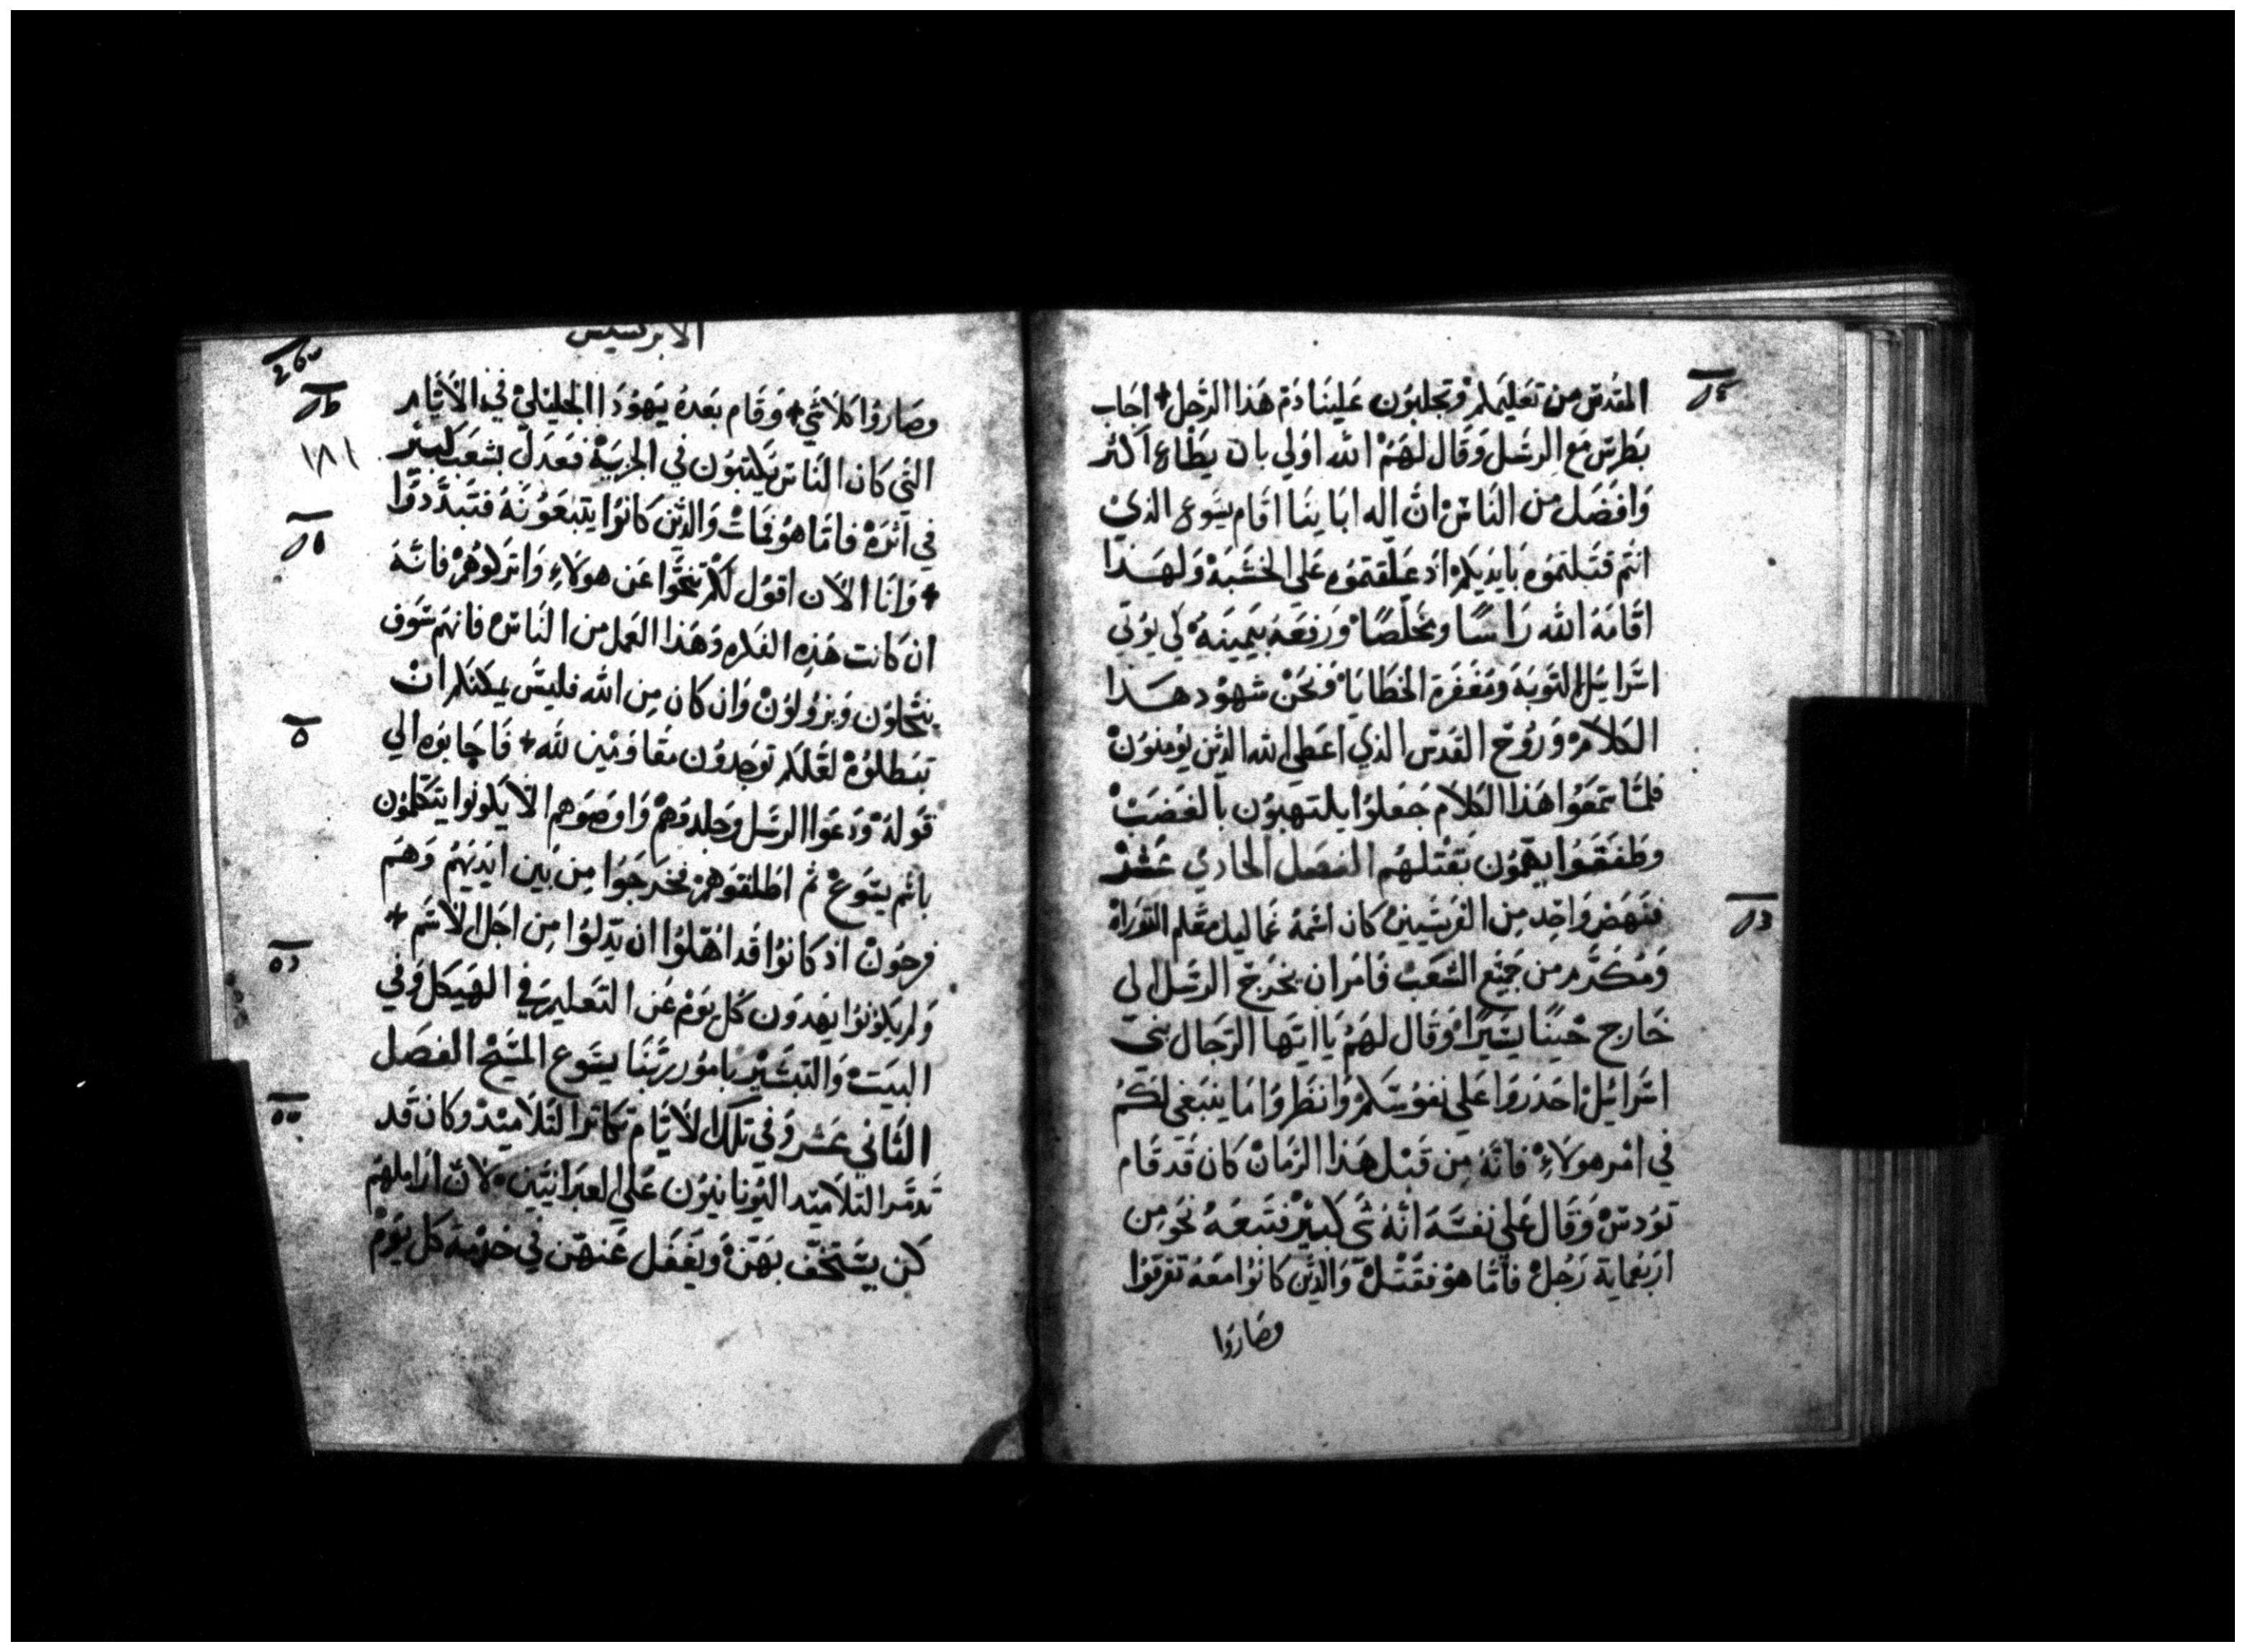 المقدس من تعليمكم وتجلبون علينا دم هذا الرجل + اجاب
بطرس مع الرسل وقال لهم الله اولي بان يطاع اكثر
وافضل من الناس ان اله اباينا اقام يسوع الذي
انتم قتلتموه بايديكم اذ علقتموه علي الخشبة ولهذا
اقامه الله راسا ومخلصا ورفعه بيمينه لي يوتي
اسراييل التوبة ومغفرة الخطايا ونحن شهود هذا
الكلام وروح القدس الذي اعطي الله الذين يومنون
فلما سمعوا هذا الكلام جعلوا يلتهبون بالغضب
وطفقوا يهمون بقتلهم الفصل الحادي عشر
فنهض واحد من الفريسيين كان اسمه غماليل معلم التوراه
ومكرم من جميع الشعب فامر ان يخرج الرسل الي
خارج حينا يسيرا وقال لهم يا ايها الرجال بني
اسراييل احذروا علي نفوسكم وانظروا ما ينبغي لكم
في امر هولاء فانه من قبل هذا الزمان كان قد قام
تودس وقال علي نفسه انه شي كبير فتبعه نحو من
اربعماية رجل فاما هو فقتل والذين كانوا معه تفرقوا
وصاروا
الابركسيس
وصاروا كلا شي + وقام بعده يهودا الجليلي في الايام
١٨١
التي كان الناس يكتبون في الجزية فعدل بشعب كبير
في اثره فاما هو فمات والذين كانوا يتبعونه فتبددوا
+ وانا الان اقول لكم تنحوا عن هولاء واتركوهم فانه
ان كانت هذه الفكره وهذا العمل من الناس فانهم سوف
ينحلون ويزولون وان كان من الله فليس يمكنكم ان
تبطلوه لعلكم توجدون مقاومين لله + فاجابوه الي
قوله ودعوا الرسل وجلدوهم واوصوهم الا يكونوا يتكلمون
باسم يسوع ثم اطلقوهم فخرجوا من بين ايديهم وهم
فرحون اذ كانوا قد اهلوا ان يذلوا من اجل الاسم +
ولم يكونوا يهدون كل يوم عن التعليم في الهيكل وفي
البيت والتبشير بامور ربنا يسوع المسيح الفصل
الثاني عشر وفي تلك الايام تكاثر التلاميذ وكان قد
تدمر التلاميد اليونانيون علي العبرانيين لان اراملهم
كن يستخف بهن ويغفل عنهن في خدمة كل يوم